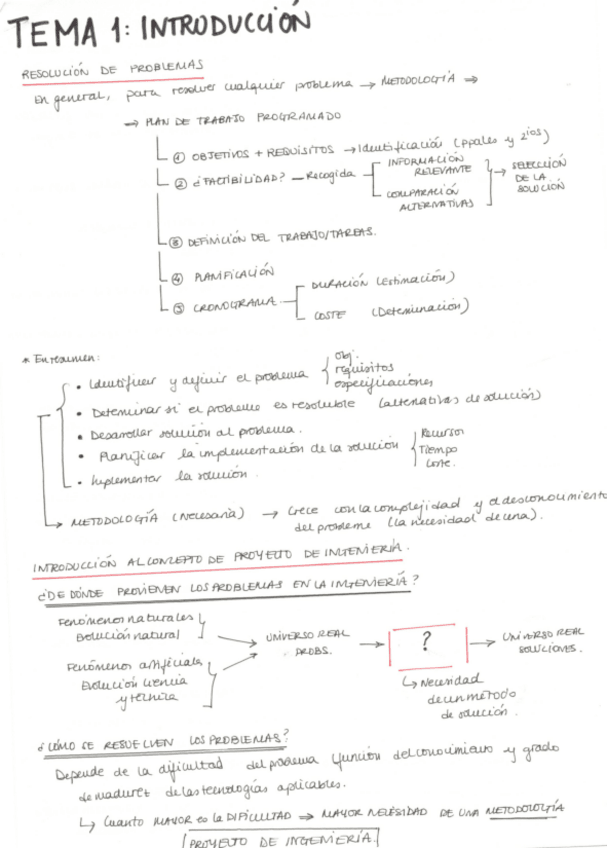 TEMA 1: INTRODUCCIÓN
RESOLUCIÓN DE PROBLEMAS
En general, para resolver cualquier problema → METODOLOGÍA ⇒
⇒ PLAN DE TRABAJO PROGRAMADO
① OBJETIVOS + REQUISITOS → Identificación (ppales y 2ios)
② ¿FACTIBILIDAD? — Recogida
INFORMACIÓN
RELEVANTE
COMPARACIÓN
ALTERNATIVAS
→ SELECCIÓN
DE LA
SOLUCIÓN
③ DEFINICIÓN DEL TRABAJO/TAREAS.
④ PLANIFICACIÓN
⑤ CRONOGRAMA
DURACIÓN (estimación)
COSTE (Determinación)
* En resumen:
• Identificar y definir el problema
obj.
requisitos
especificaciones
• Determinar si el problema es resoluble (alternativas de solución)
• Desarrollar solución al problema.
• Planificar la implementación de la solución
Recursos
Tiempo
Coste.
• Implementar la solución.
→ METODOLOGÍA (Necesaria) → Crece con la complejidad y el desconocimiento
del problema (la necesidad de una).
INTRODUCCIÓN AL CONCEPTO DE PROYECTO DE INGENIERÍA.
¿DE DÓNDE PROVIENEN LOS PROBLEMAS EN LA INGENIERÍA?
Fenómenos naturales
Evolución natural
Fenómenos artificiales
Evolución ciencia
y técnica
UNIVERSO REAL
PROBS.
?
UNIVERSO REAL
SOLUCIONES.
↳ Necesidad
de un método
de solución.
¿CÓMO SE RESUELVEN LOS PROBLEMAS?
Depende de la dificultad del problema (función del conocimiento y grado
de madurez de las tecnologías aplicables.
↳ Cuanto MAYOR es la DIFICULTAD ⇒ MAYOR NECESIDAD DE UNA METODOLOGÍA
PROYECTO DE INGENIERÍA.